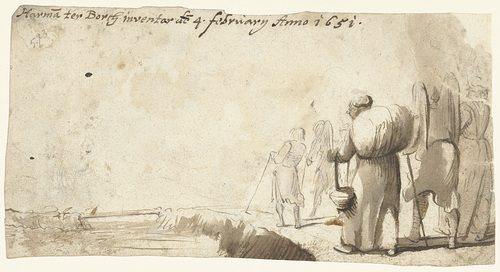 Harmã ter Borch inventor de 4. february Anno 1651.